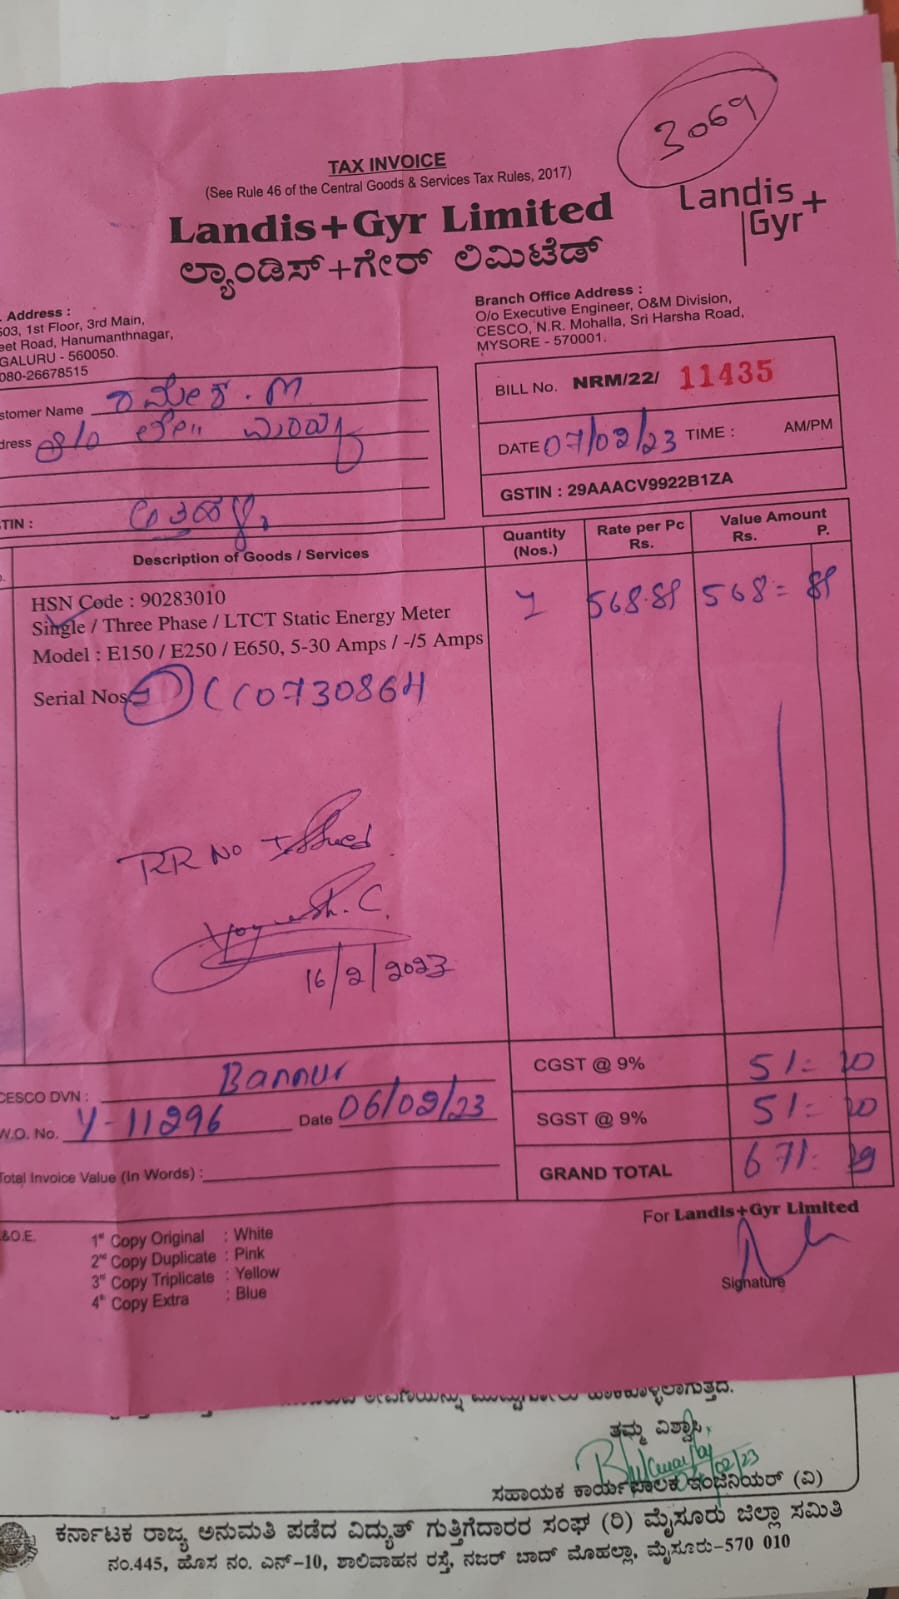 3069
TAX INVOICE
(See Rule 46 of the Central Goods & Services Tax Rules, 2017)
Landis+Gyr Limited
Landis+
Gyr
ಲ್ಯಾಂಡಿಸ್+ಗೇರ್ ಲಿಮಿಟೆಡ್
Address :
603, 1st Floor, 3rd Main,
eet Road, Hanumanthnagar,
GALURU - 560050.
080-26678515
Branch Office Address :
O/o Executive Engineer, O&M Division,
CESCO, N.R. Mohalla, Sri Harsha Road,
MYSORE - 570001.
stomer Name ರಮೇಶ . M
dress S/o ಲೇ||
TIN :
BILL No. NRM/22/ 11435
DATE 07/02/23 TIME : AM/PM
GSTIN : 29AAACV9922B1ZA
Description of Goods / Services
Quantity (Nos.)
Rate per Pc Rs.
Value Amount Rs. P.
HSN Code : 90283010
Single / Three Phase / LTCT Static Energy Meter
Model : E150 / E250 / E650, 5-30 Amps / -/5 Amps
1 568.89 568= 89
Serial Nos CC0730864
RR No Issued
Yogeesh. C.
16/2/2023
CESCO DVN : Bannur
W.O. No. Y-11296 Date 06/02/23
Total Invoice Value (In Words) :
CGST @ 9% 51= 20
SGST @ 9% 51= 20
GRAND TOTAL 671= 29
&O.E.
1st Copy Original : White
2nd Copy Duplicate : Pink
3rd Copy Triplicate : Yellow
4th Copy Extra : Blue
For Landis+Gyr Limited
Signature
ತಮ್ಮ ವಿಶ್ವಾಸಿ,
02/23
ಸಹಾಯಕ ಕಾರ್ಯಪಾಲಕ ಇಂಜಿನಿಯರ್ (ವಿ)
ಕರ್ನಾಟಕ ರಾಜ್ಯ ಅನುಮತಿ ಪಡೆದ ವಿದ್ಯುತ್ ಗುತ್ತಿಗೆದಾರರ ಸಂಘ (ರಿ) ಮೈಸೂರು ಜಿಲ್ಲಾ ಸಮಿತಿ
ನಂ.445, ಹೊಸ ನಂ. ಎನ್-10, ಶಾಲಿವಾಹನ ರಸ್ತೆ, ನಜರ್ ಬಾದ್ ಮೊಹಲ್ಲಾ, ಮೈಸೂರು-570 010